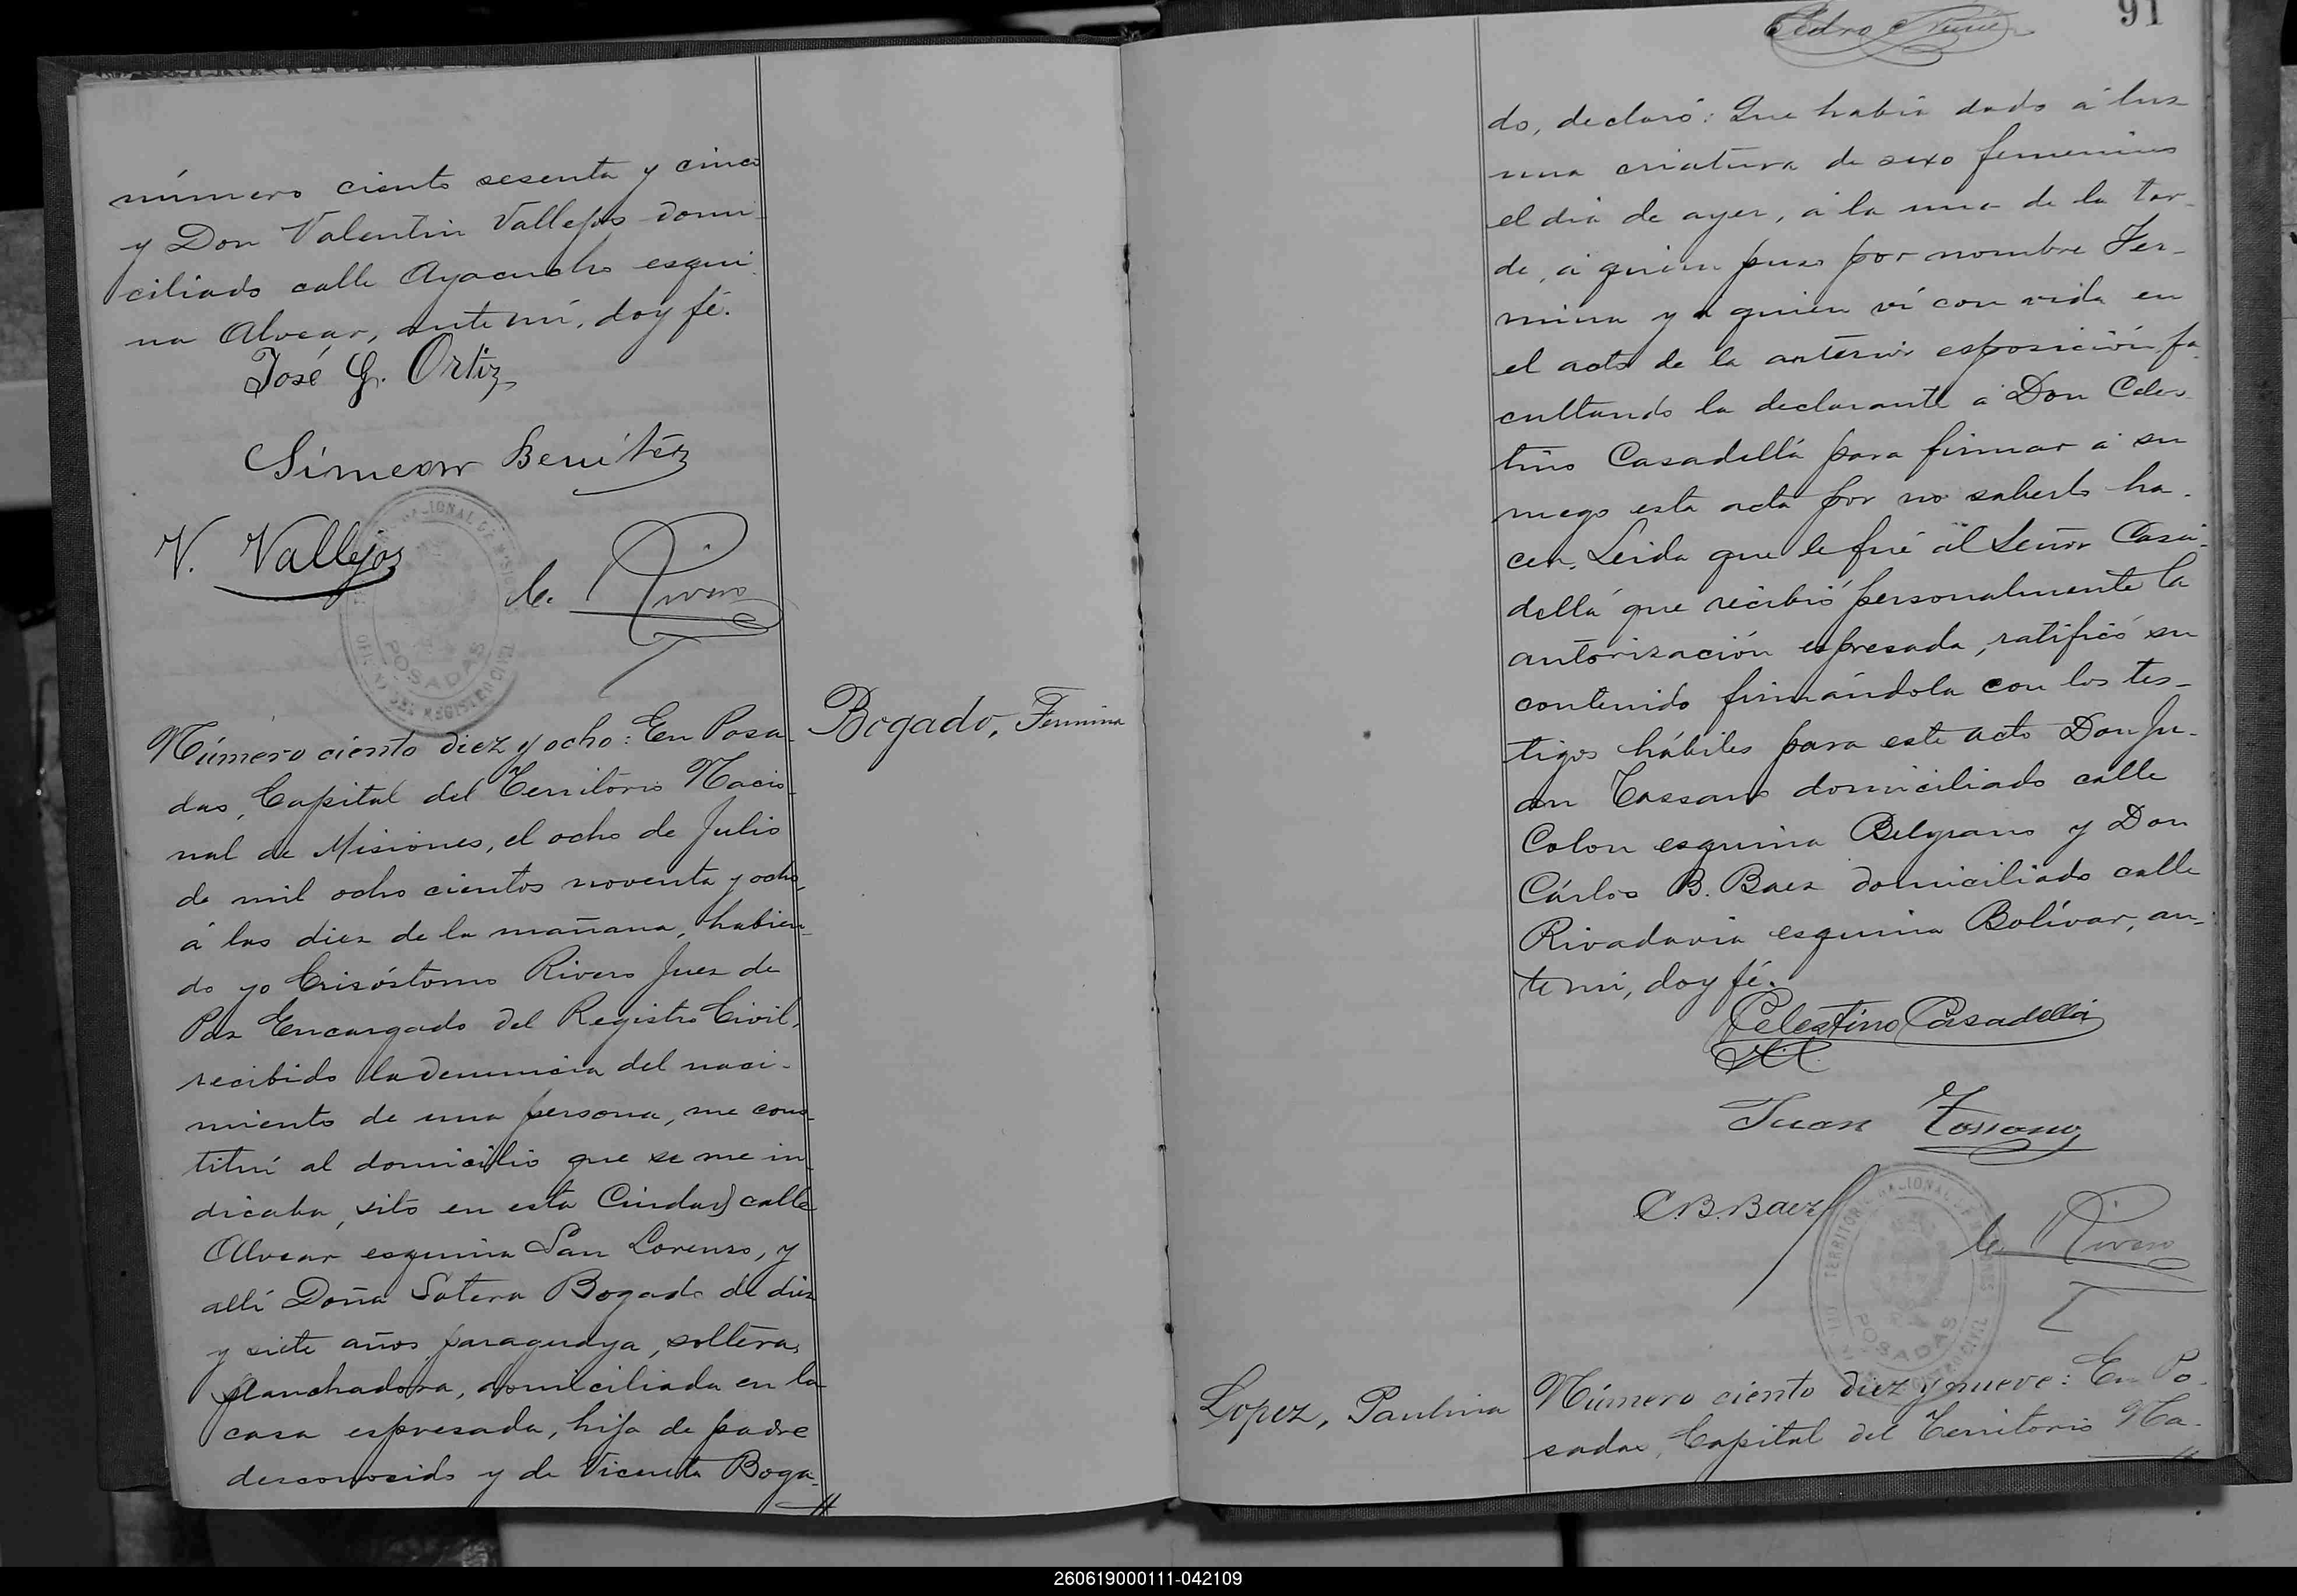 número ciento sesenta y cinco
y Don Valentin Vallejos domi-
ciliado calle Ayacucho esqui-
na Alvear, ante mí, doy fé.
José G. Ortiz
Símeon Benítez
V. Vallejos
C. Rivero
POSADAS
OFICINA DEL REGISTRO CIVIL
Bogado, Fermina
Número ciento diez y ocho: En Posa-
das, Capital del Territorio Nacio-
nal de Misiones, el ocho de Julio
de mil ocho cientos noventa y ocho,
á las diez de la mañana, habien-
do yo Crisóstomo Rivero Juez de
Paz Encargado del Registro Civil,
recibido la denuncia del naci-
miento de una persona, me cons-
tituí al domicilio que se me in-
dicaba, sito en esta Ciudad calle
Alvear esquina San Lorenzo, y
allí Doña Sotera Bogado de diez
y siete años, paraguaya, soltera,
planchadora, domiciliada en la
casa espresada, hija de padre
desconocido y de Vicenta Boga-
91
Pedro
do, declaró: Que habia dado á luz
una criatura de sexo femenino
el dia de ayer, á la una de la tar-
de, á quien puso por nombre Fer-
mina y á quien ví con vida en
el acto de la anterior esposición fa-
cultando la declarante á Don Celes-
tino Casadellá para firmar á su
ruego esta acta por no saberlo ha-
cer. Leida que le fué al Señor Casa-
dellá que recibió personalmente la
autorización espresada, ratificó su
contenido firmándola con los tes-
tigos hábiles para este acto Don Ju-
an Tassano domiciliado calle
Colon esquina Belgrano y Don
Cárlos B. Baez domiciliado calle
Rivadavia esquina Bolívar, an-
te mi, doy fé.
Celestino Casadellá
Juan Tossano
C.B. Baez
C. Rivero
TERRITORIO NACIONAL DE MISIONES
POSADAS
Lopez, Paulina
Número ciento diez y nueve: En Po-
sadas, Capital del Territorio Na-
260619000111-042109